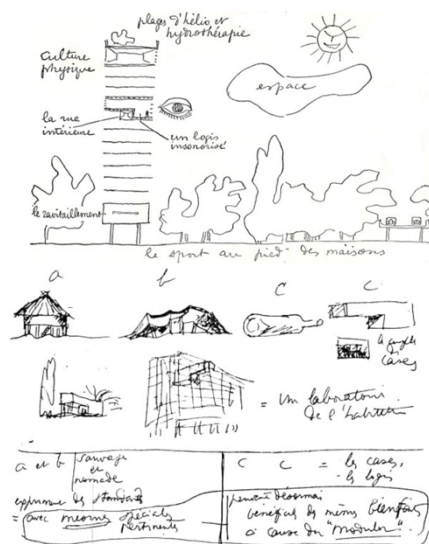 plages d'hélio et
hydrothérapie
culture
physique
espace
la rue
intérieure
un logis
insonorisé
le ravitaillement
le sport au pied des maisons
a
b
C
C
cases
= un laboratoire
de l'habitation
a et b
sauvage
et
nomade
C C = les cases,
les logis
expression des standards
= avec mesures spéciales
pertinentes
peuvent désormais
bénéficier les mêmes bienfaits
à cause du "modulor".